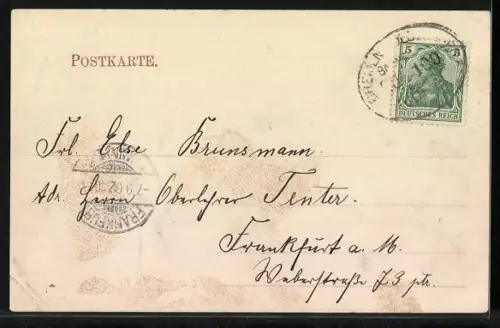 POSTKARTE.
5 5
DEUTSCHES REICH
BREMEN
100
Frl. Else Brunsmann
Adr. Herrn Oberlehrer Tenter.
FRANKFURT
Frankfurt a. M.
Weberstraße 73 ptr.